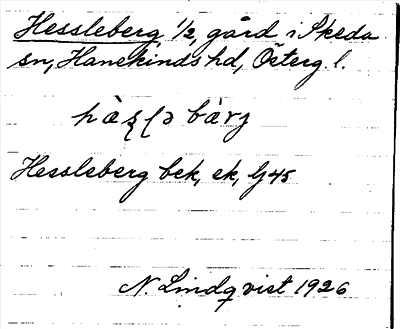 Hessleberg 1/2, gård i Skeda
sn, Hanekinds hd, Österg. l.
Hessleberg bek, ek, Gj 45
N. Lindqvist 1926